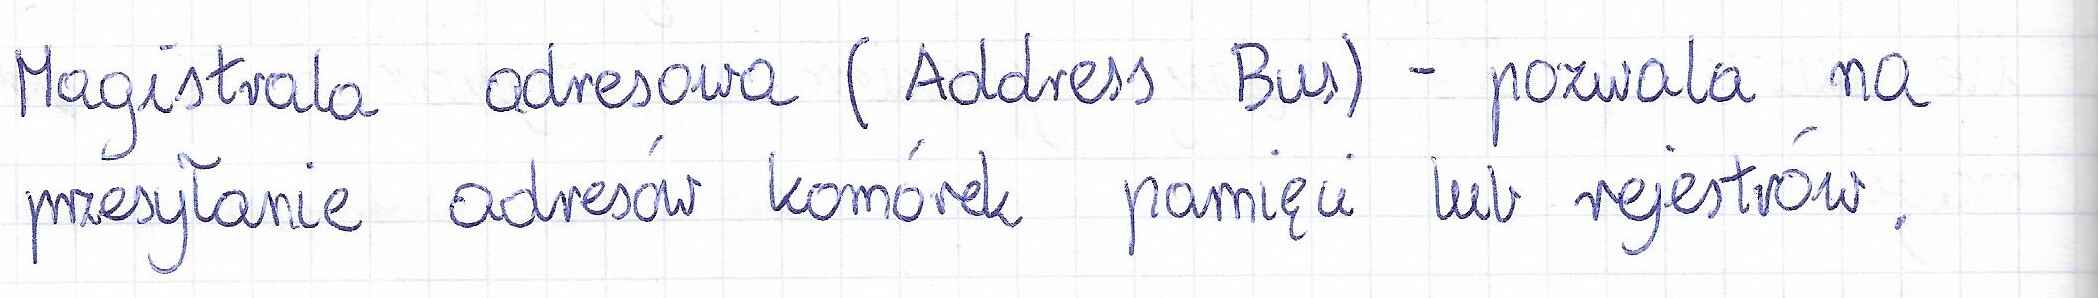 Magistrala adresowa (Address Bus) - pozwala na
przesyłanie adresów komórek pamięci lub rejestrów.